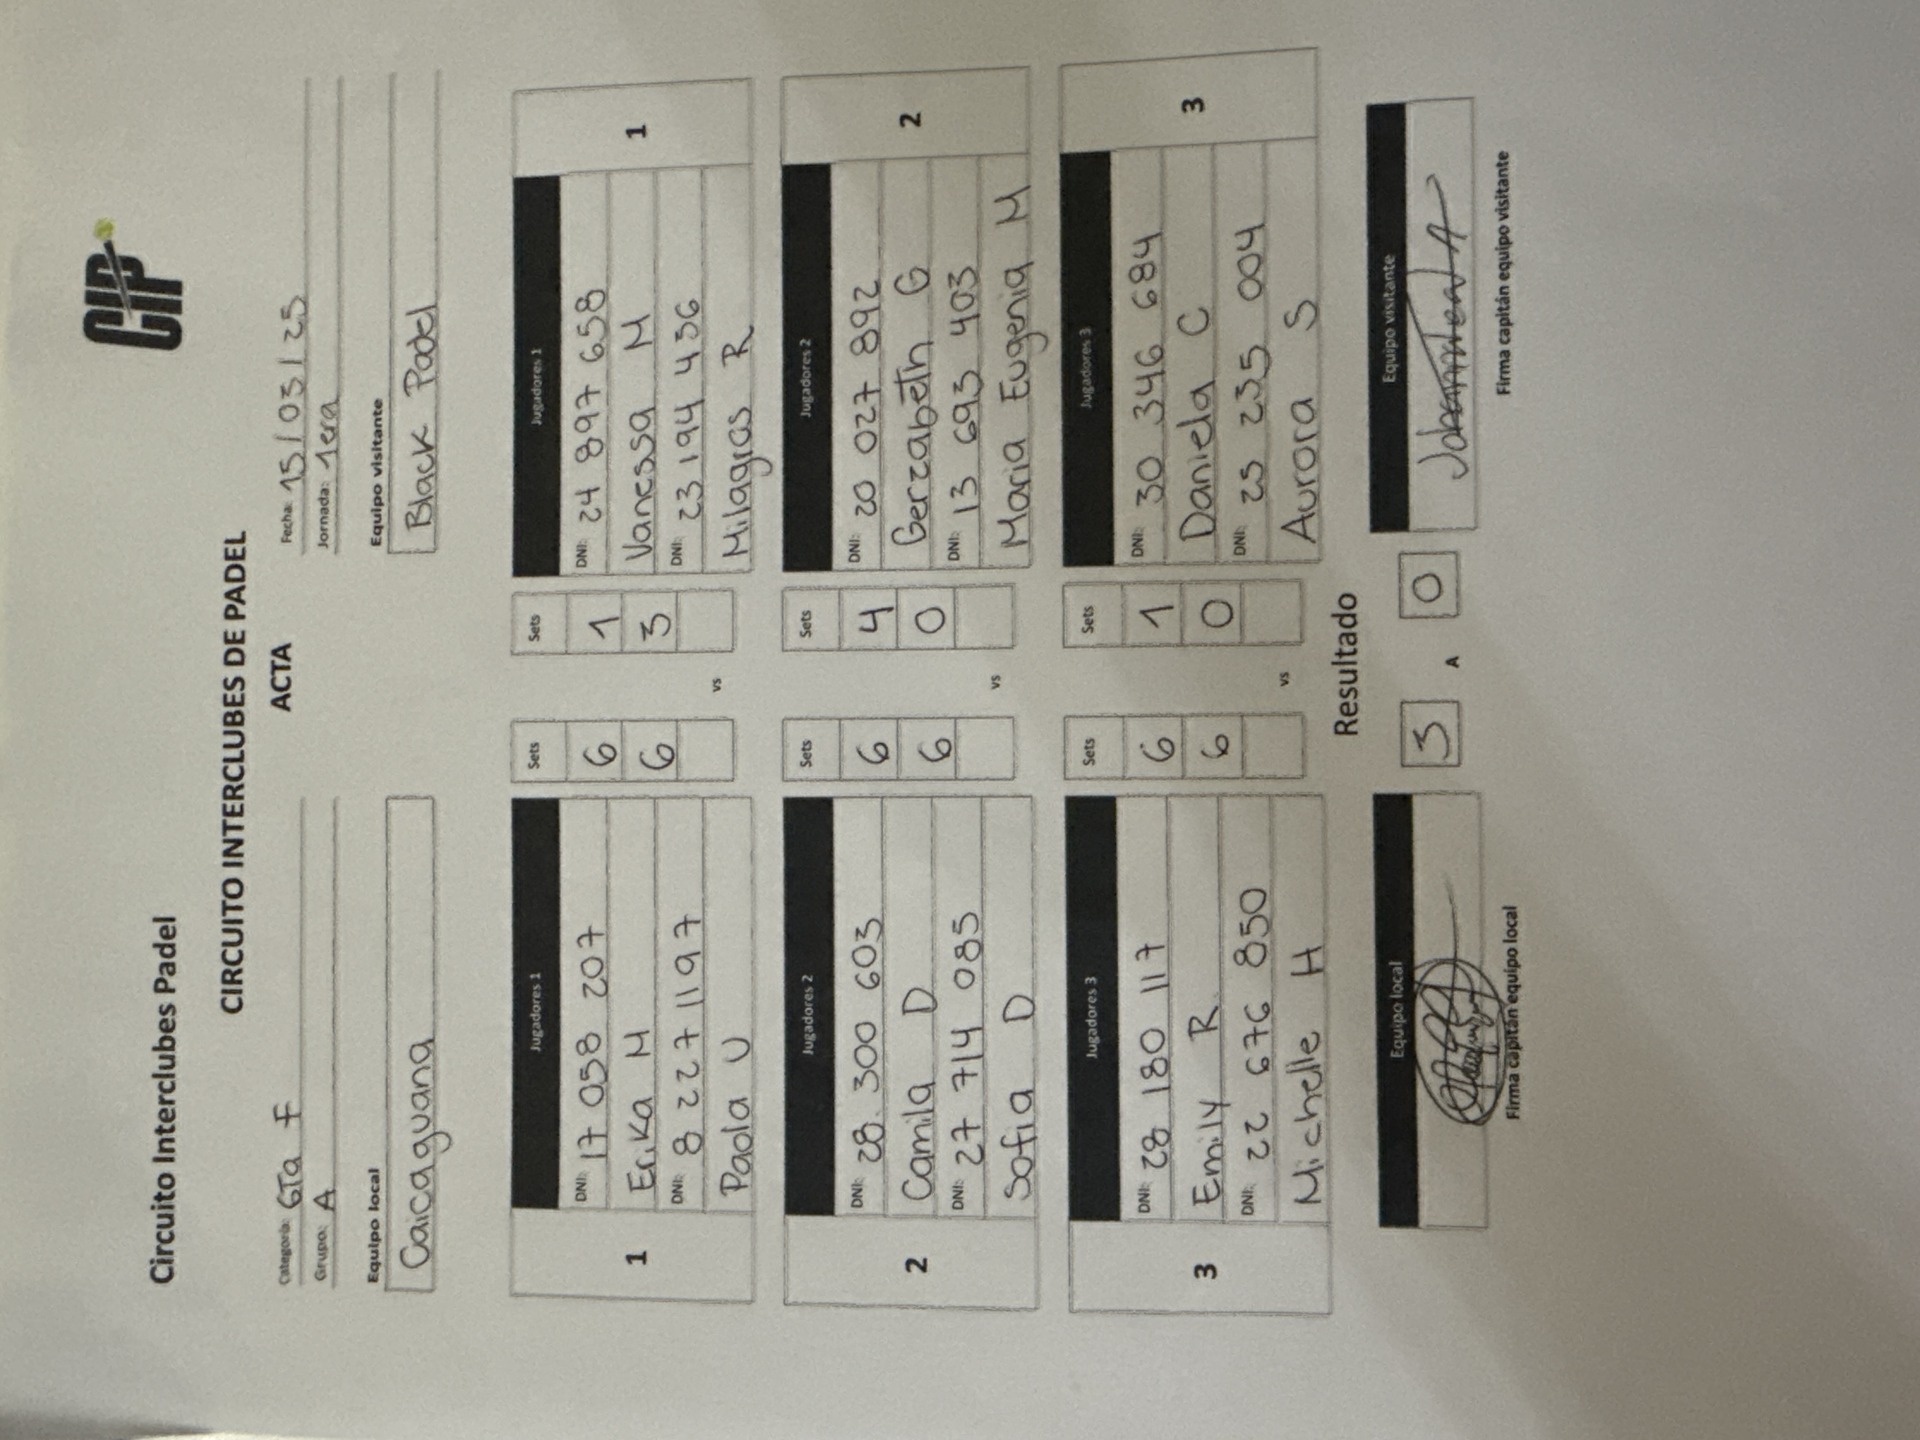 CIP
Circuito Interclubes Padel
CIRCUITO INTERCLUBES DE PADEL
ACTA
Categoria: 6Ta F
Fecha: 15/03/25
Grupo: A
Jornada: 1era
Equipo local
Equipo visitante
Caicaguana
Black Padel
Jugadores 1 Sets Sets Jugadores 1
DNI: 17 058 207 6 1 DNI: 24 897 658
1 Erika M 6 3 Vanessa M 1
DNI: 8 227 1197 DNI: 23 194 436
Paola U vs Milagros R
Jugadores 2 Sets Sets Jugadores 2
DNI: 28.300 603 6 4 DNI: 20 027 892
2 Camila D 6 0 Gerzabeth G 2
DNI: 27 714 085 DNI: 13 693 403
Sofia D vs Maria Eugenia M
Jugadores 3 Sets Sets Jugadores 3
DNI: 28 180 117 6 1 DNI: 30 346 684
3 Emily R. 6 0 Daniela C 3
DNI: 22 676 850 DNI: 25 235 004
Michelle H vs Aurora S
Resultado
Equipo local 3 A 0 Equipo visitante
Firma capitán equipo local
Firma capitán equipo visitante